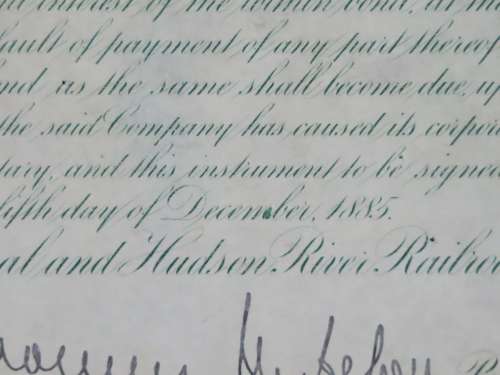 interest of the within bond, at the
fault of payment of any part thereof
and as the same shall become due, up
the said Company has caused its corpor
tary, and this instrument to be signed
fifth day of December, 1885.
al and Hudson River Railroa